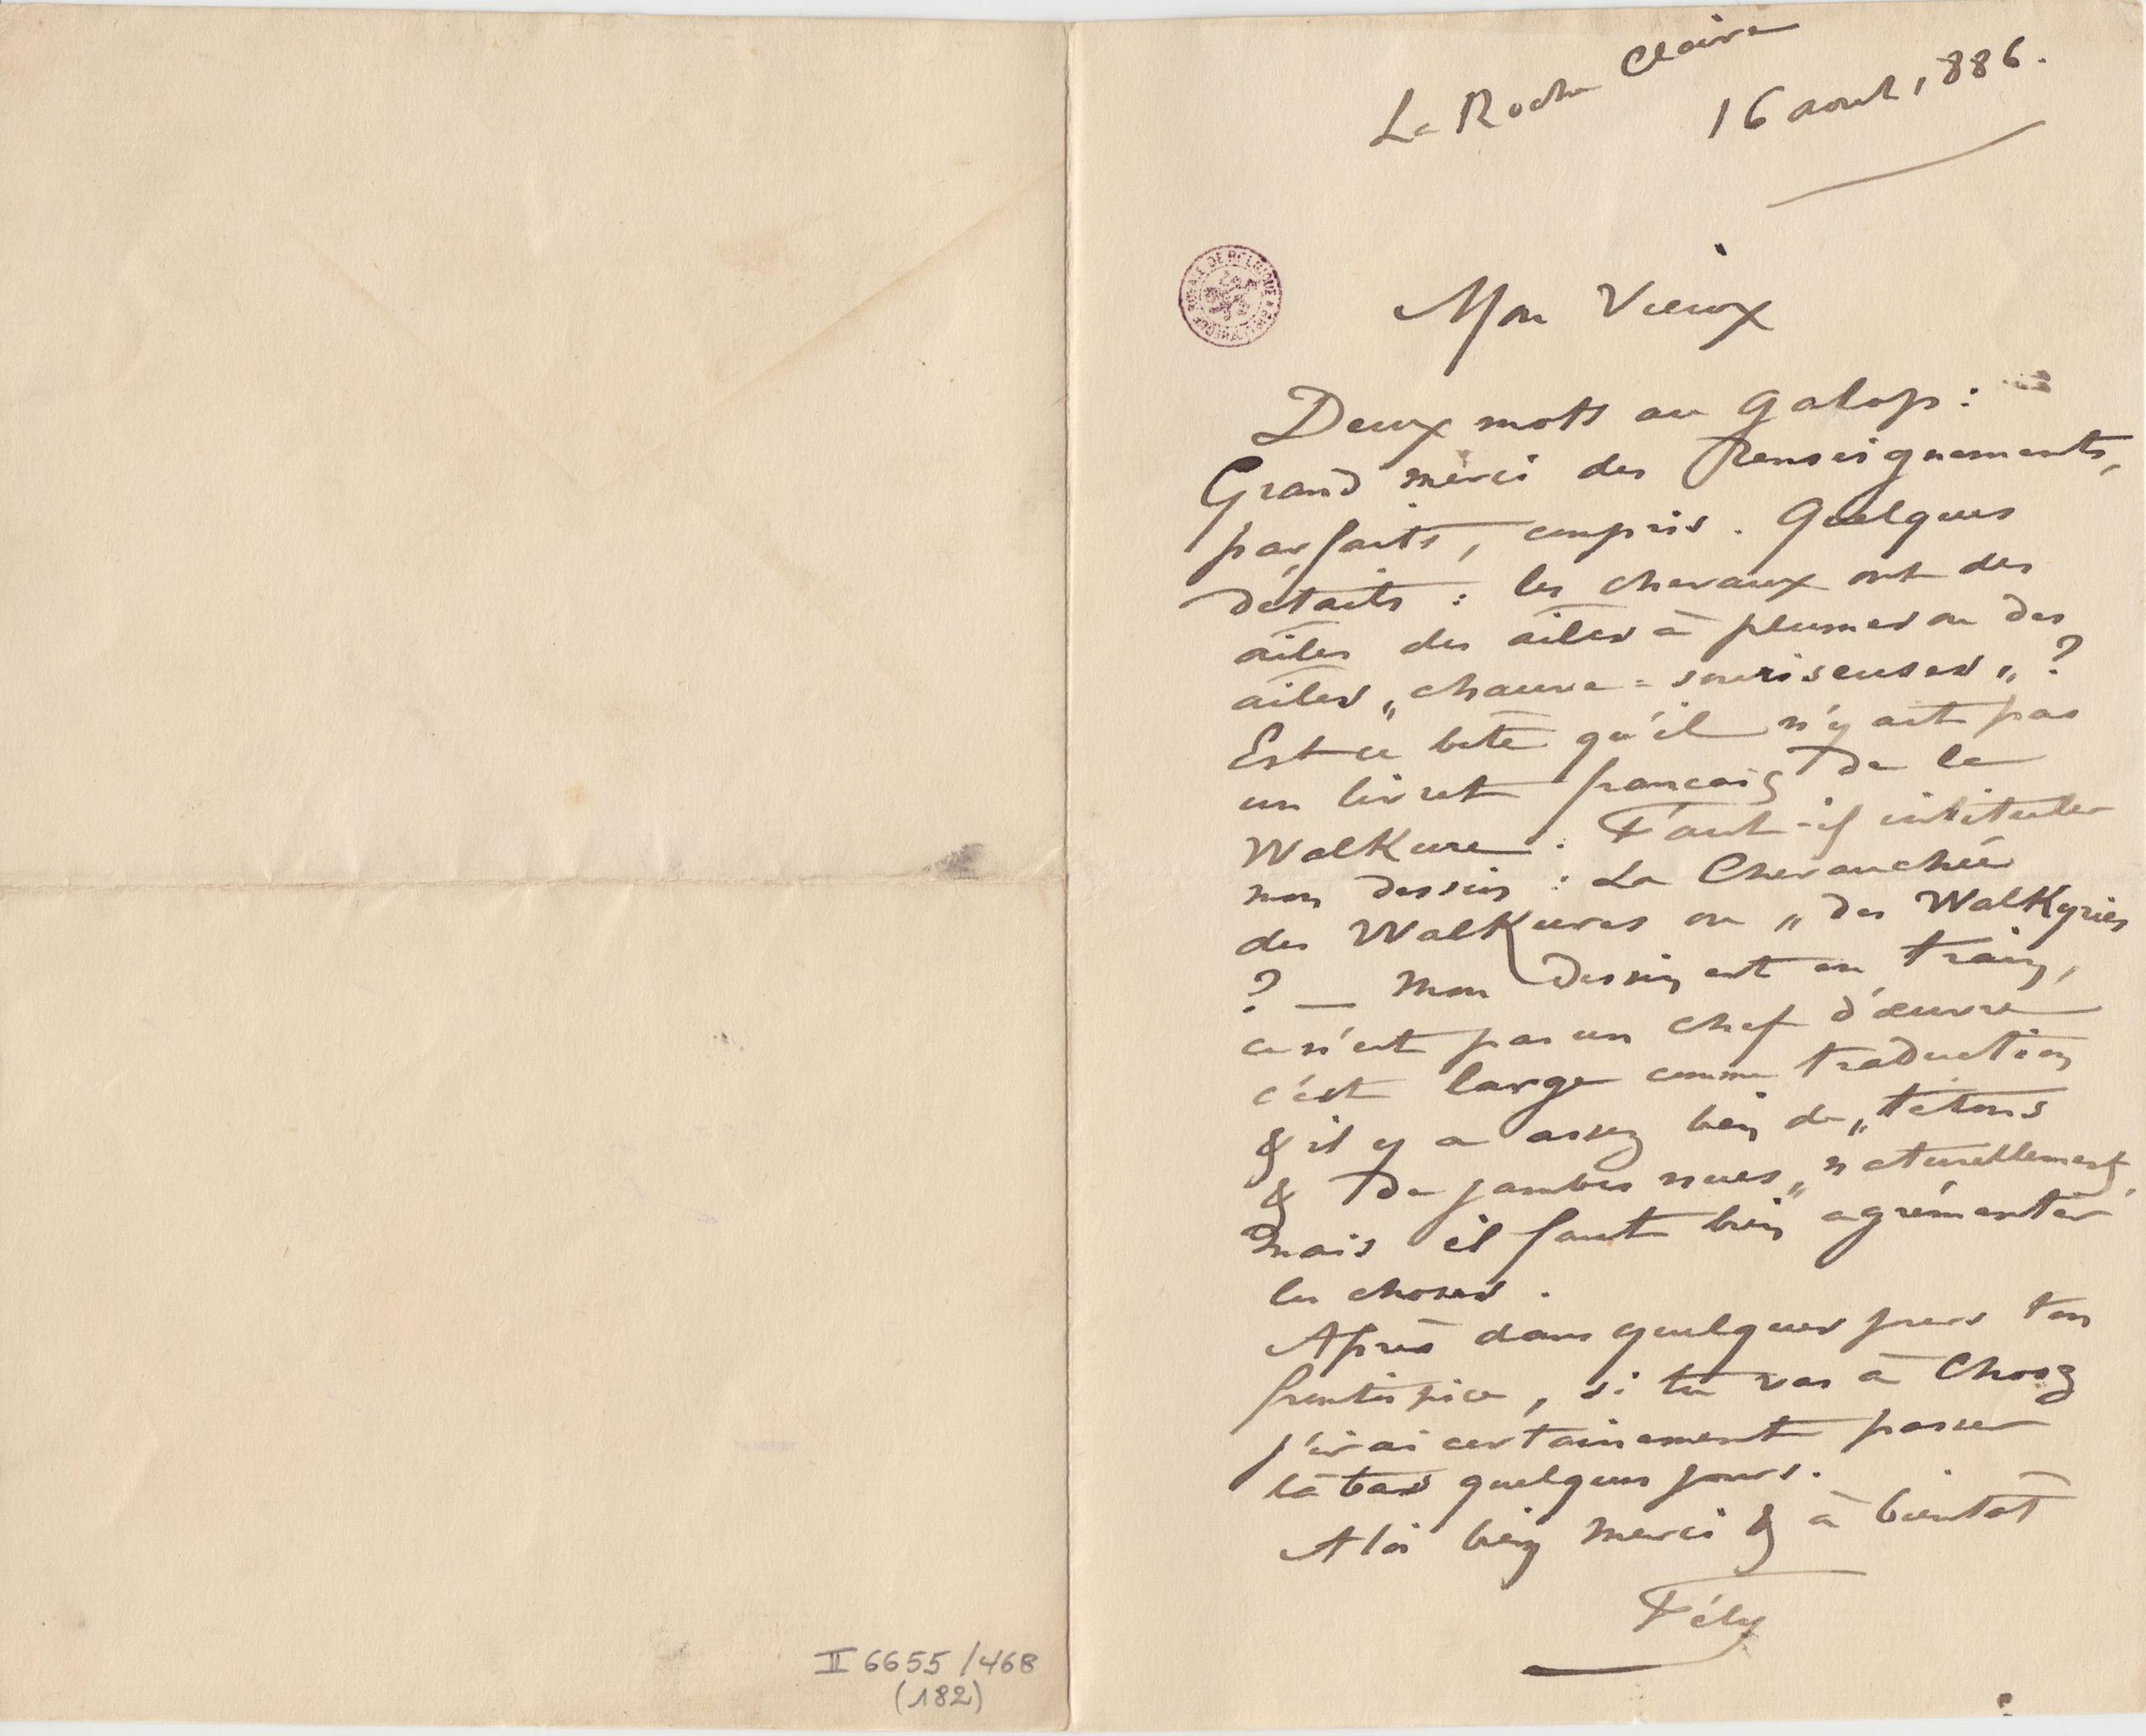 La Roche Claire
16 aout 1886.
Mon Vieux
Deux mots au galop :
Grand merci des Renseignements,
parfaits, compris. Quelques
détails : les chevaux ont des
ailes des ailes à plumes ou des
ailes „chauve=souriseuses„ ?
Est ce bête qu'il n'y ait pas
un livret français de la
Walkure. Faut-il intituler
mon dessin : La Chevauchée
des Walkures ou „des Walkyries
? — Mon dessin est en train,
ce n'est pas un chef d'œuvre
c'est large comme traduction
& il y a assez bien de „tétons
& de jambes nues„ naturellement,
mais il faut bien agrémenter
les choses.
Après dans quelques jours ton
frontispice, si tu vas à Chooz
j'irai certainement passer
là bas quelques jours.
A toi bien merci & à bientôt
Fély
II 6655/468
(182)
ROYALE DE BELGIQUE